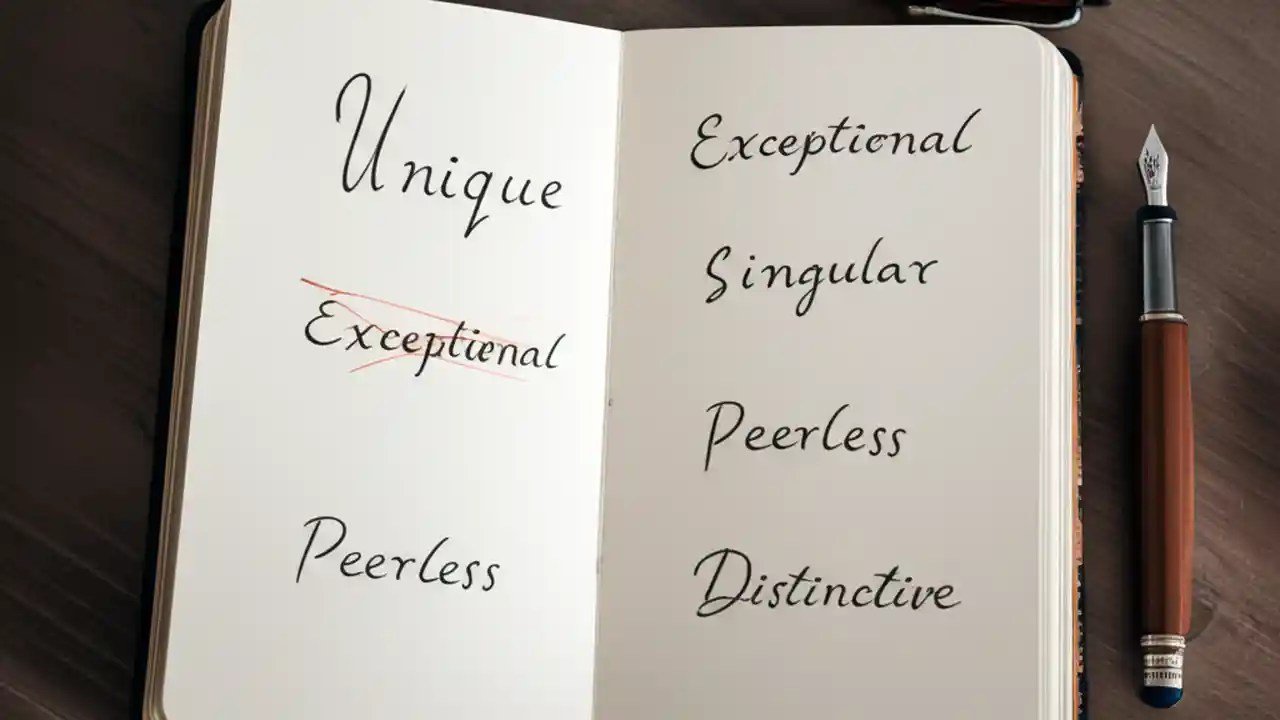 Unique
Exceptional
Peerless
Exceptional
Singular
Peerless
Distinctive